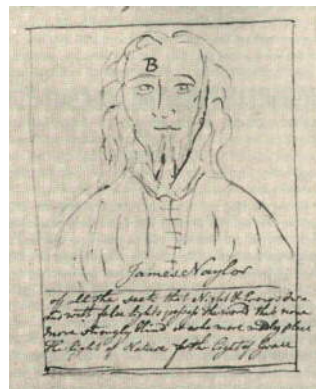 B
James Naylor
of all the sects that Night &
with false lights the world that none
more strongly blind who more place
the light of Nature for the light of Grace